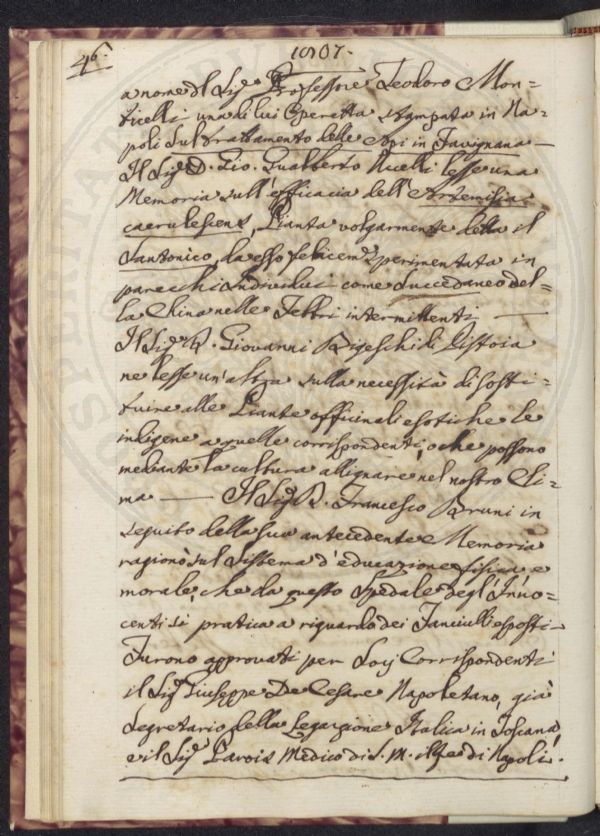 46.
1807.
a nome del Sig.e Professore Teodoro Mon=
ticelli una di lui Operetta stampata in Na=
poli sul trattamento delle Api in Favignana —
Il Sig.e D. Gio. Gualberto Uccelli lesse una
Memoria sull'efficacia dell'Artemisia
caerulescens, Pianta volgarmente detta il
Santonico, da esso felicem.e sperimentata in
parecchi Individui come Succedaneo del=
la China nelle Febbri intermittenti —
Il Sig.e D. Giovanni Bigeschi di Pistoia
ne lesse un'altra sulla necessità di sosti=
tuire alle Piante officinali esotiche le
indigene a quelle corrispondenti, o che possono
mediante la cultura allignare nel nostro Cli=
ma — Il Sig.e D. Francesco Bruni in
seguito della sua antecedente Memoria
ragionò sul Sistema d'educazione fisica e
morale, che da questo Spedale degl'Inno=
centi si pratica a riguardo dei Fanciulli esposti —
Furono approvati per Soci Corrispondenti
il Sig.e Giuseppe De Cesare Napoletano, già
Segretario della Legazione Italica in Toscana,
e il Sig.e Medico di S. M. il Re di Napoli.